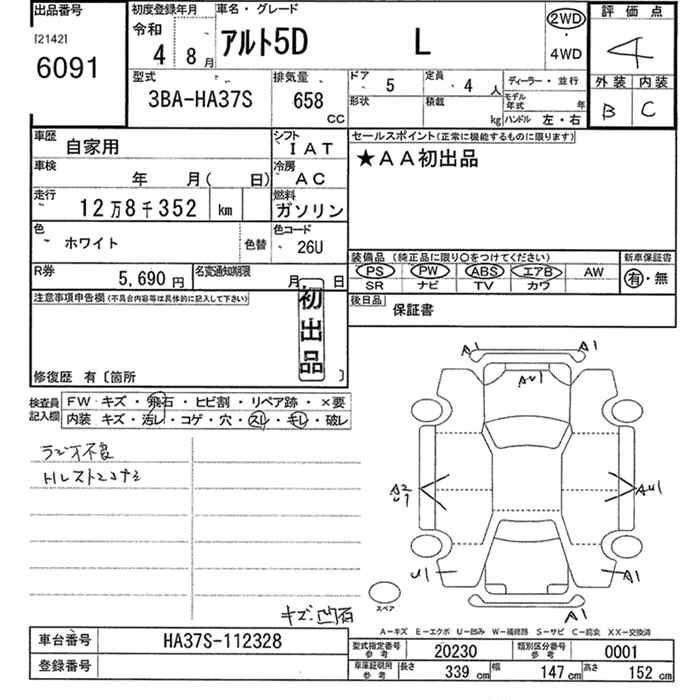 出品番号 初度登録年月 車名・グレード 評価点
[2142] 令和
6091 4 8月 アルト5D L 2WD・4WD 4
型式 排気量 ドア 5 定員 4人 ディーラー・並行 外装 内装
3BA-HA37S 658 CC 形状 積載 kg モデル年式 年 ハンドル 左・右 B C
車歴 自家用 シフト IAT セールスポイント(正常に機能するものに限ります)
車検 年 月( 日) 冷房 AC ★AA初出品
走行 12万8千352 km 燃料 ガソリン
色 ホワイト 色替 色コード 26U
装備品 (純正品に限り○をつけてください) 新車保証書
R券 5,690円 名変通知期限 月 日 PS PW ABS エアB AW 有・無
SR ナビ TV カワ
注意事項申告欄(不具合内容等は具体的に記入して下さい) 初出品 後日品 保証書
修復歴 有〔箇所 〕
検査員記入欄 FW キズ・飛石・ヒビ割・リペア跡・×要
内装 キズ・汚レ・コゲ・穴・スレ・キレ・破レ
ラジオ不良
A1 A1
AU1
A2 U1 AU1
U1 A1
A1
スペア
キズ・凹有
A-キズ E-エクボ U-凹み W-補修跡 S-サビ C-腐食 XX-交換済
車台番号 HA37S-112328 型式指定番号 参考 20230 類別区分番号 参考 0001
登録番号 車庫証明用 参考 長さ 339 cm 幅 147 cm 高さ 152 cm